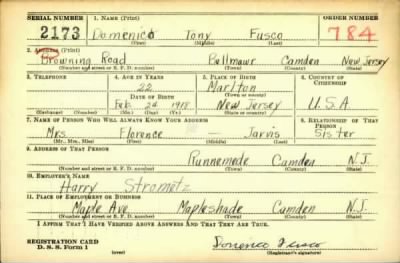 SERIAL NUMBER 1. NAME (Print) ORDER NUMBER
2173 Domenico Tony Fusco 784
(First) (Middle) (Last)
2. ADDRESS (Print)
Browning Road Bellmawr Camden New Jersey
(Number and street or R. F. D. number) (Town) (County) (State)
3. TELEPHONE 4. AGE IN YEARS 5. PLACE OF BIRTH 6. COUNTRY OF CITIZENSHIP
22 Marlton
DATE OF BIRTH (Town or county)
Feb. 24 1918 New Jersey U.S.A
(Exchange) (Number) (Mo.) (Day) (Yr.) (State or country)
7. NAME OF PERSON WHO WILL ALWAYS KNOW YOUR ADDRESS 8. RELATIONSHIP OF THAT PERSON
Mrs. Florence — Jarvis Sister
(Mr., Mrs., Miss) (First) (Middle) (Last)
9. ADDRESS OF THAT PERSON
Runnemede Camden N.J.
(Number and street or R. F. D. number) (Town) (County) (State)
10. EMPLOYER'S NAME
Harry Strometz
11. PLACE OF EMPLOYMENT OR BUSINESS
Maple Ave. Mapleshade Camden N.J.
(Number and street or R. F. D. number) (Town) (County) (State)
I AFFIRM THAT I HAVE VERIFIED ABOVE ANSWERS AND THAT THEY ARE TRUE.
REGISTRATION CARD
D. S. S. Form 1 (over) Domenico Fusco
(Registrant's signature)